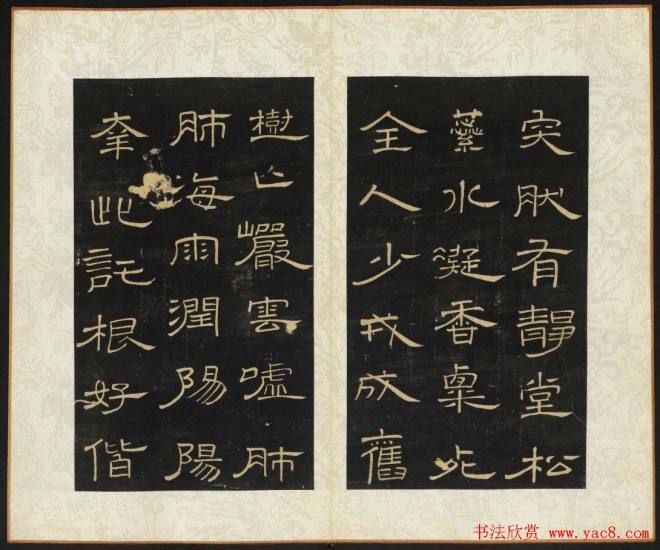 肰有靜堂松
水凝香
全人少戎成舊
樹巖雲噓肺
肺海雨潤陽陽
此託根好偕
书法欣赏 www.yac8.com